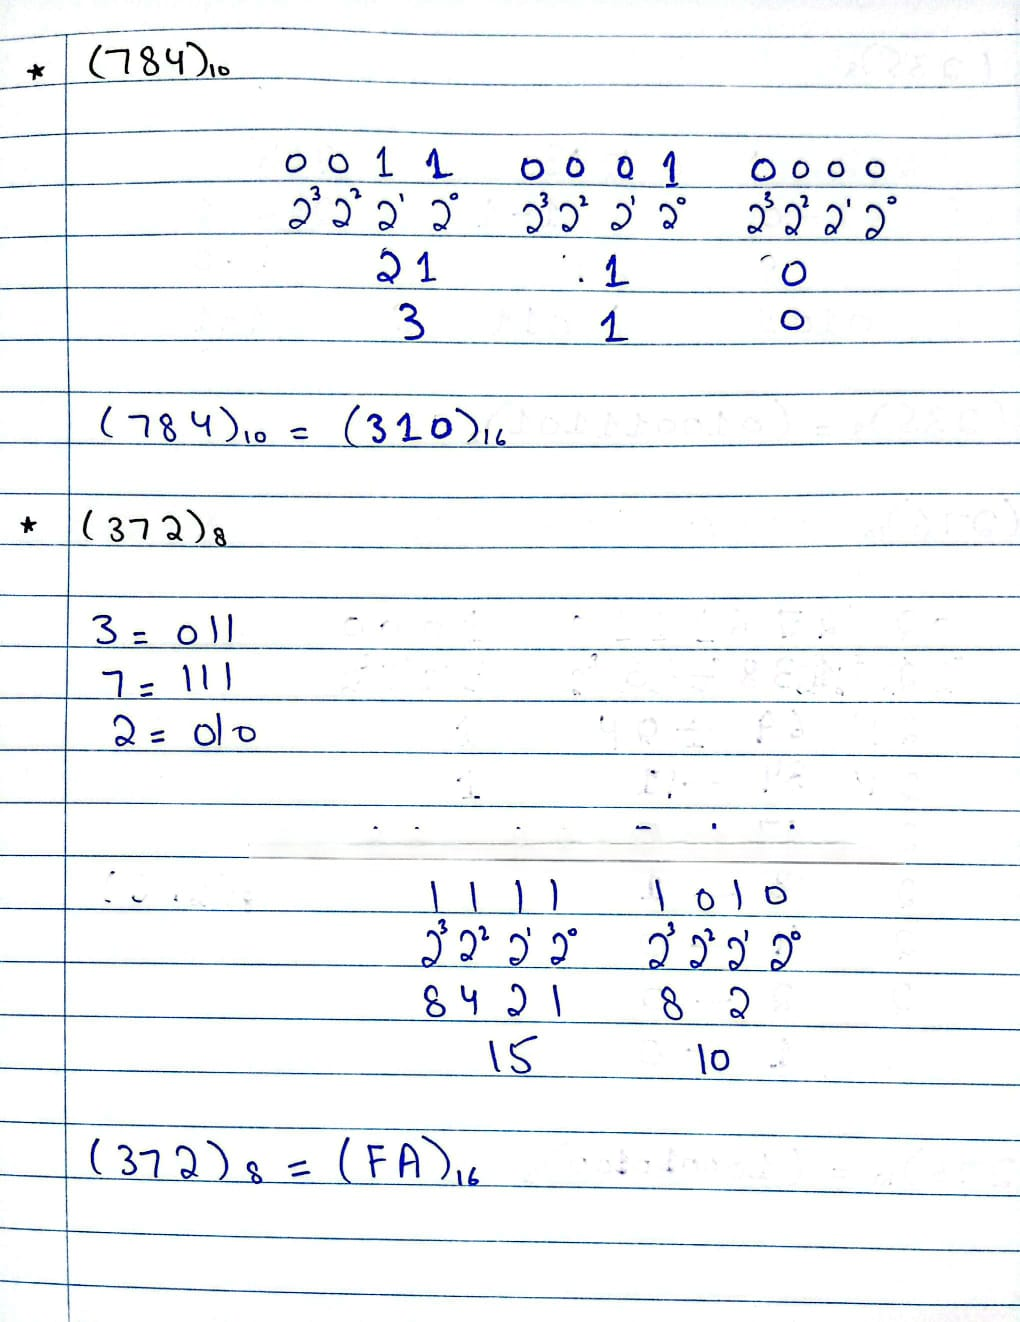 * (784)₁₀
0 0 1 1 0 0 0 1 0 0 0 0
2³ 2² 2¹ 2⁰ 2³ 2² 2¹ 2⁰ 2³ 2² 2¹ 2⁰
2 1 1 0
3 1 0
(784)₁₀ = (310)₁₆
* (372)₈
3 = 011
7 = 111
2 = 010
1 1 1 1 1 0 1 0
2³ 2² 2¹ 2⁰ 2³ 2² 2¹ 2⁰
8 4 2 1 8 2
15 10
(372)₈ = (FA)₁₆